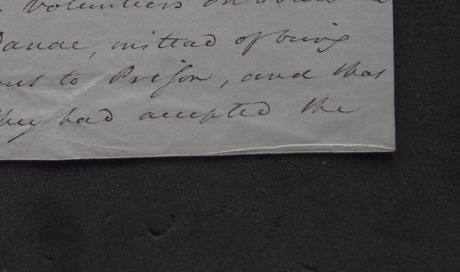 Volunteers on board
Danae, instead of being
sent to Prison, and that
they had accepted the